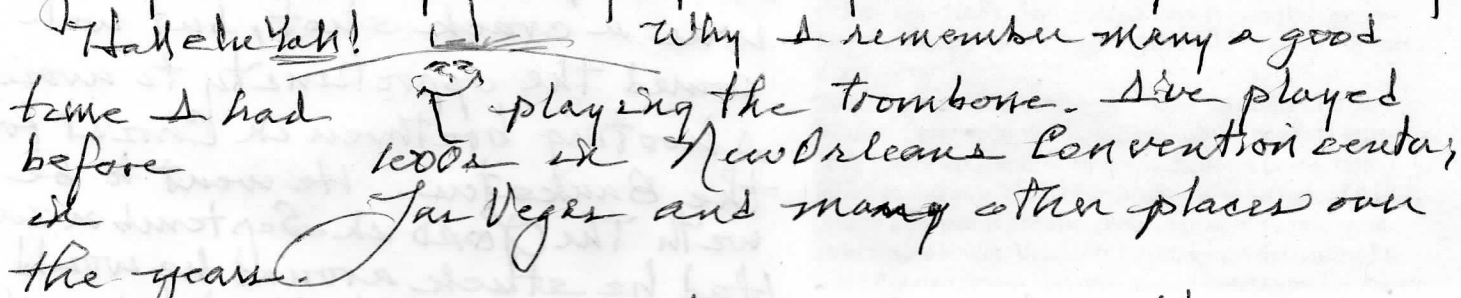 Hallelujah! Why I remember many a good
time I had playing the trombone. I've played
before 1000s in New Orleans Convention center,
in Las Vegas and many other places over
the years.